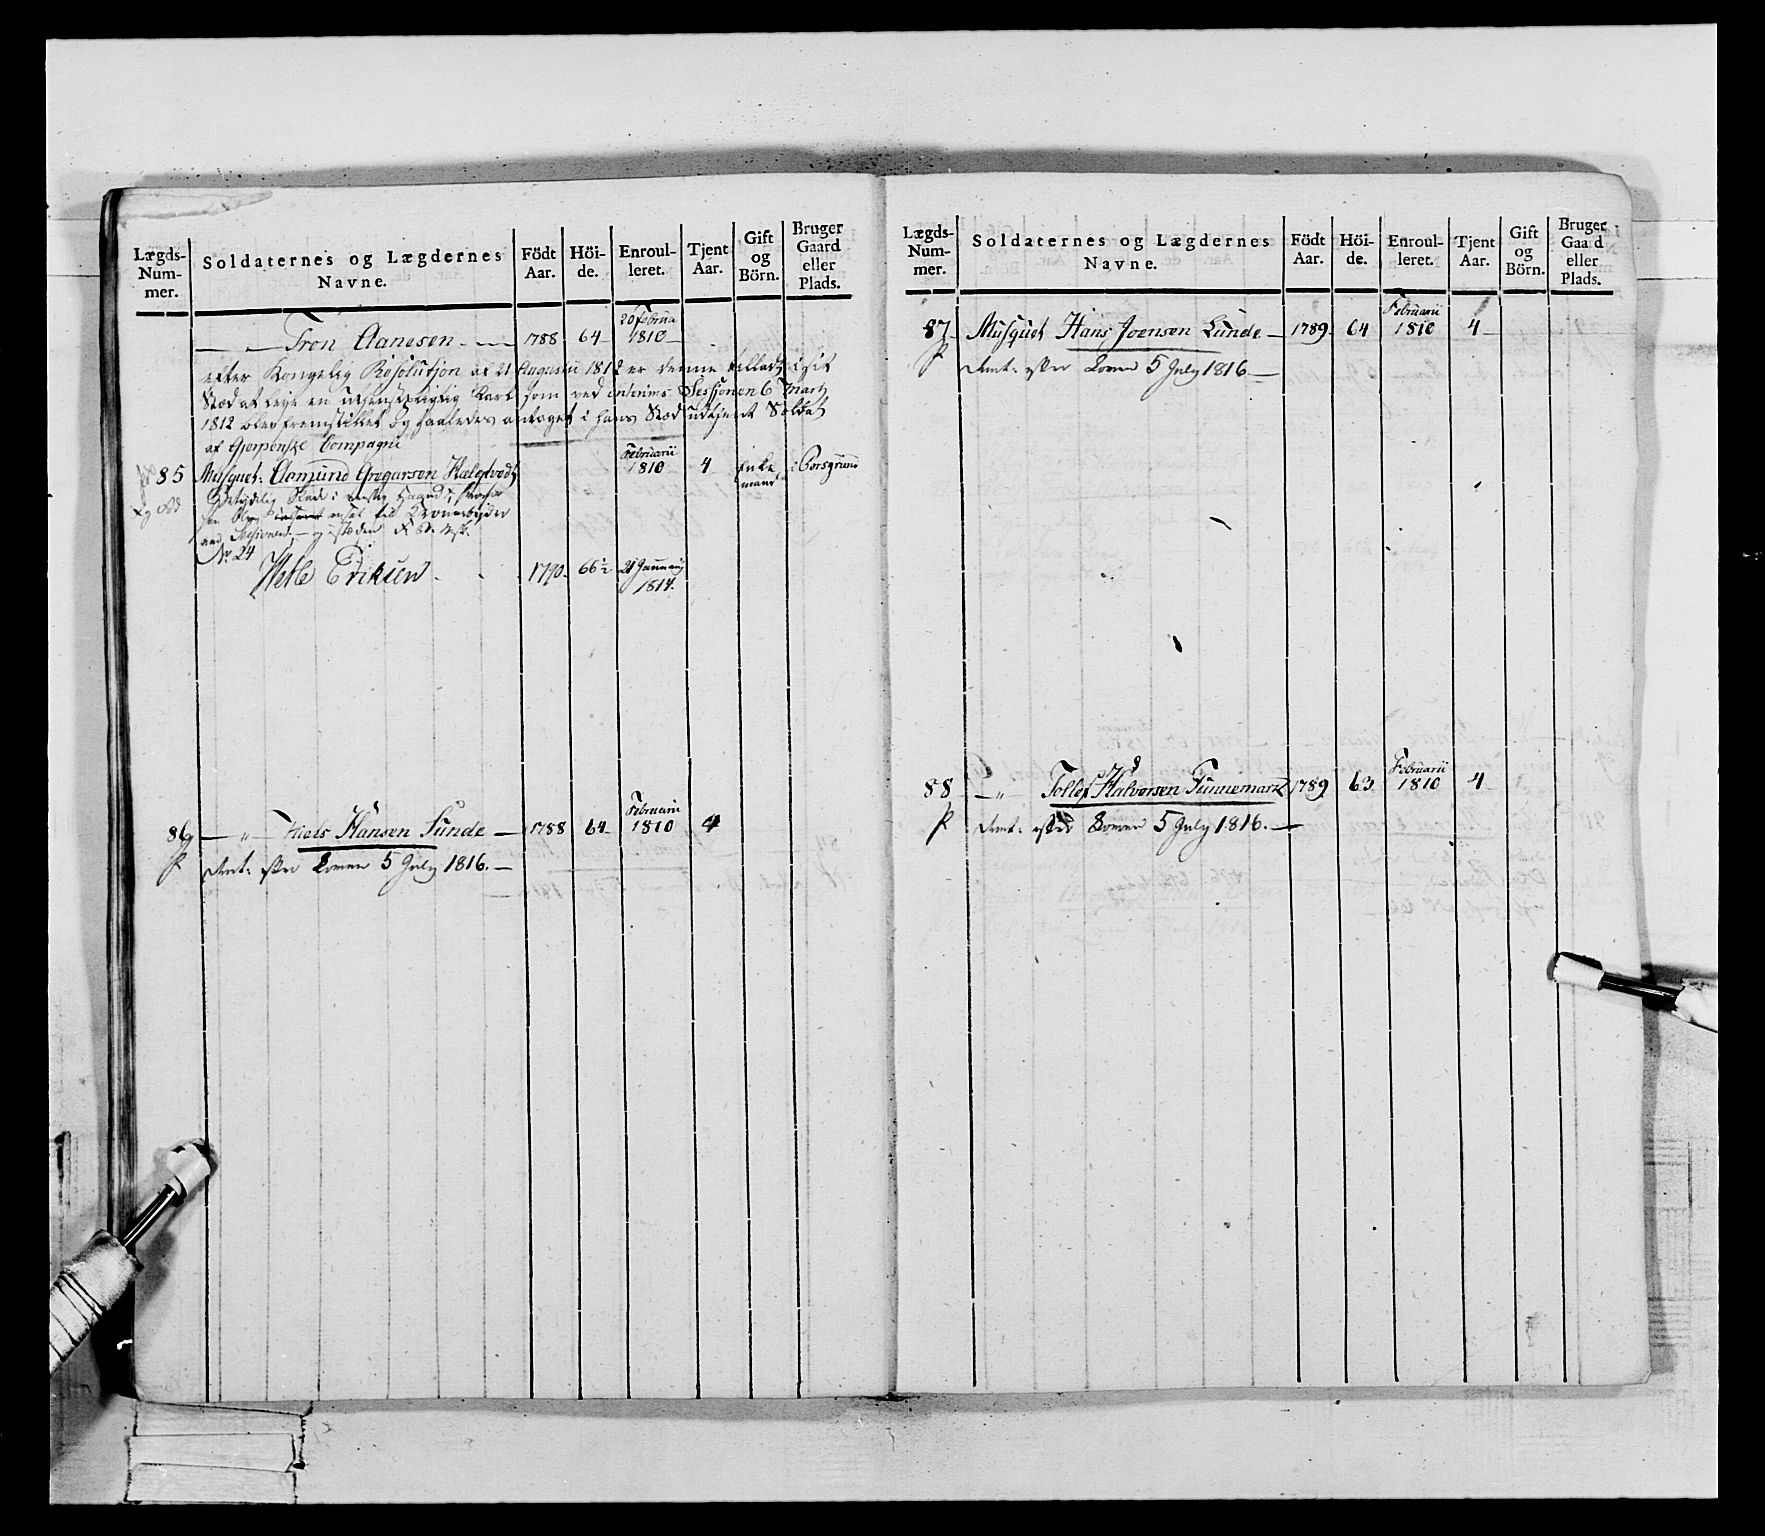 Lægds-Num-mer. Soldaternes og Lægdernes Navne. Födt Aar. Höi-de. Enroul-leret. Tjent Aar. Gift og Börn. Bruger Gaard eller Plads.
Tron Aanesen 1788 64 20 Februa 1810
efter Kongelig Resolution af 21 Augustii 1812 er denne tilladt i sit
Stæd at leje en utjenstpligtig Karl som ved interims Sessjonen 6 Marty
1812 blev fremstillet og saaledes antaget i hans Stæd udtjent Soldat
af Gjerpenske Compagni
85 Musquet: Aamund Gregarsen 1810 Februarii 4 Enke mand i Porsgrund
No 24
Eriksen 1790 66½ 21 1814.
86 — " — Niels Hansen Sunde — 1788 64 Februarii 1810 4
efter Loven 5 July 1816. —
Lægds-Num-mer. Soldaternes og Lægdernes Navne. Födt Aar. Höi-de. Enroul-leret. Tjent Aar. Gift og Börn. Bruger Gaard eller Plads.
87 Musquet Hans Joensen Lunde — 1789 64 Februarii 1810 4
efter Loven 5 July 1816. —
88 — " — Tollef Halvorsen 1789 63 Februarii 1810 4
efter Loven 5 July 1816. —